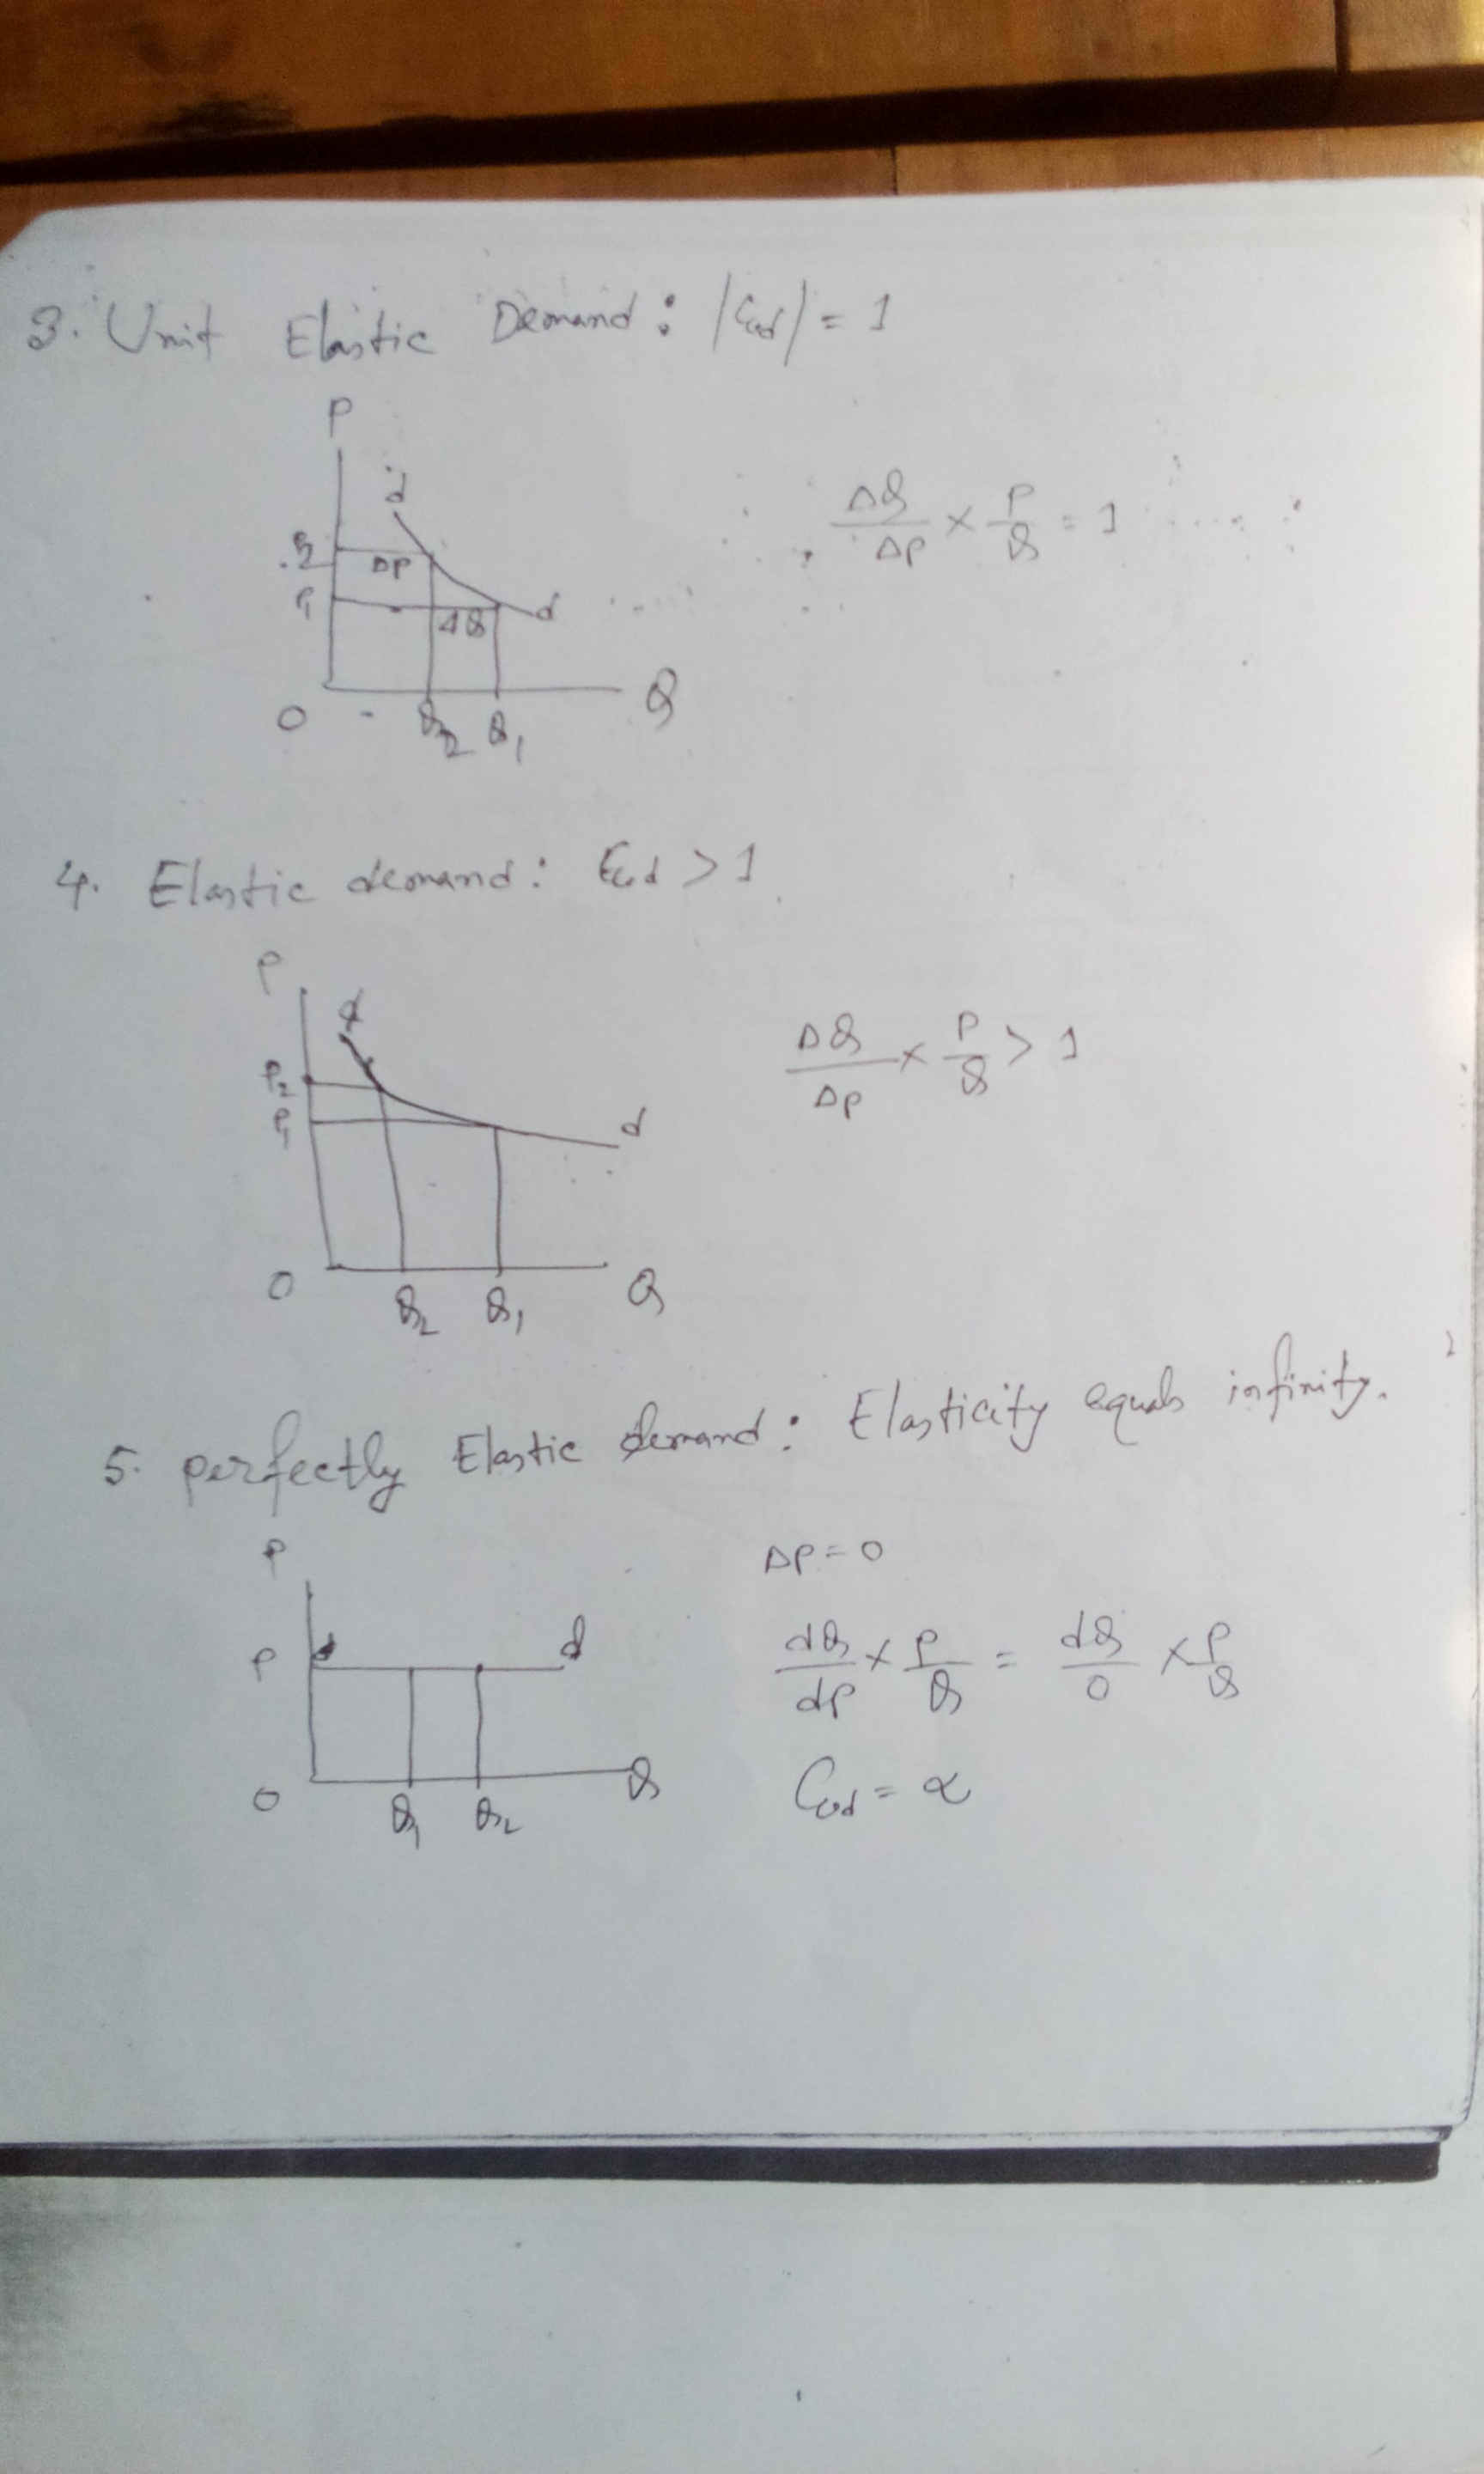 3. Unit Elastic Demand : |Ed| = 1
P
d
P2
ΔP
P1
ΔQ
d
O
Q2 Q1
Q
ΔQ/ΔP × P/Q = 1
4. Elastic demand : Ed > 1
P
d
P2
P1
d
O
Q2 Q1
Q
ΔQ/ΔP × P/Q > 1
5. perfectly Elastic demand : Elasticity equals infinity.
P
P d
d
O
Q1 Q2
Q
ΔP = 0
dQ/dP × P/Q = dQ/0 × P/Q
Ed = α